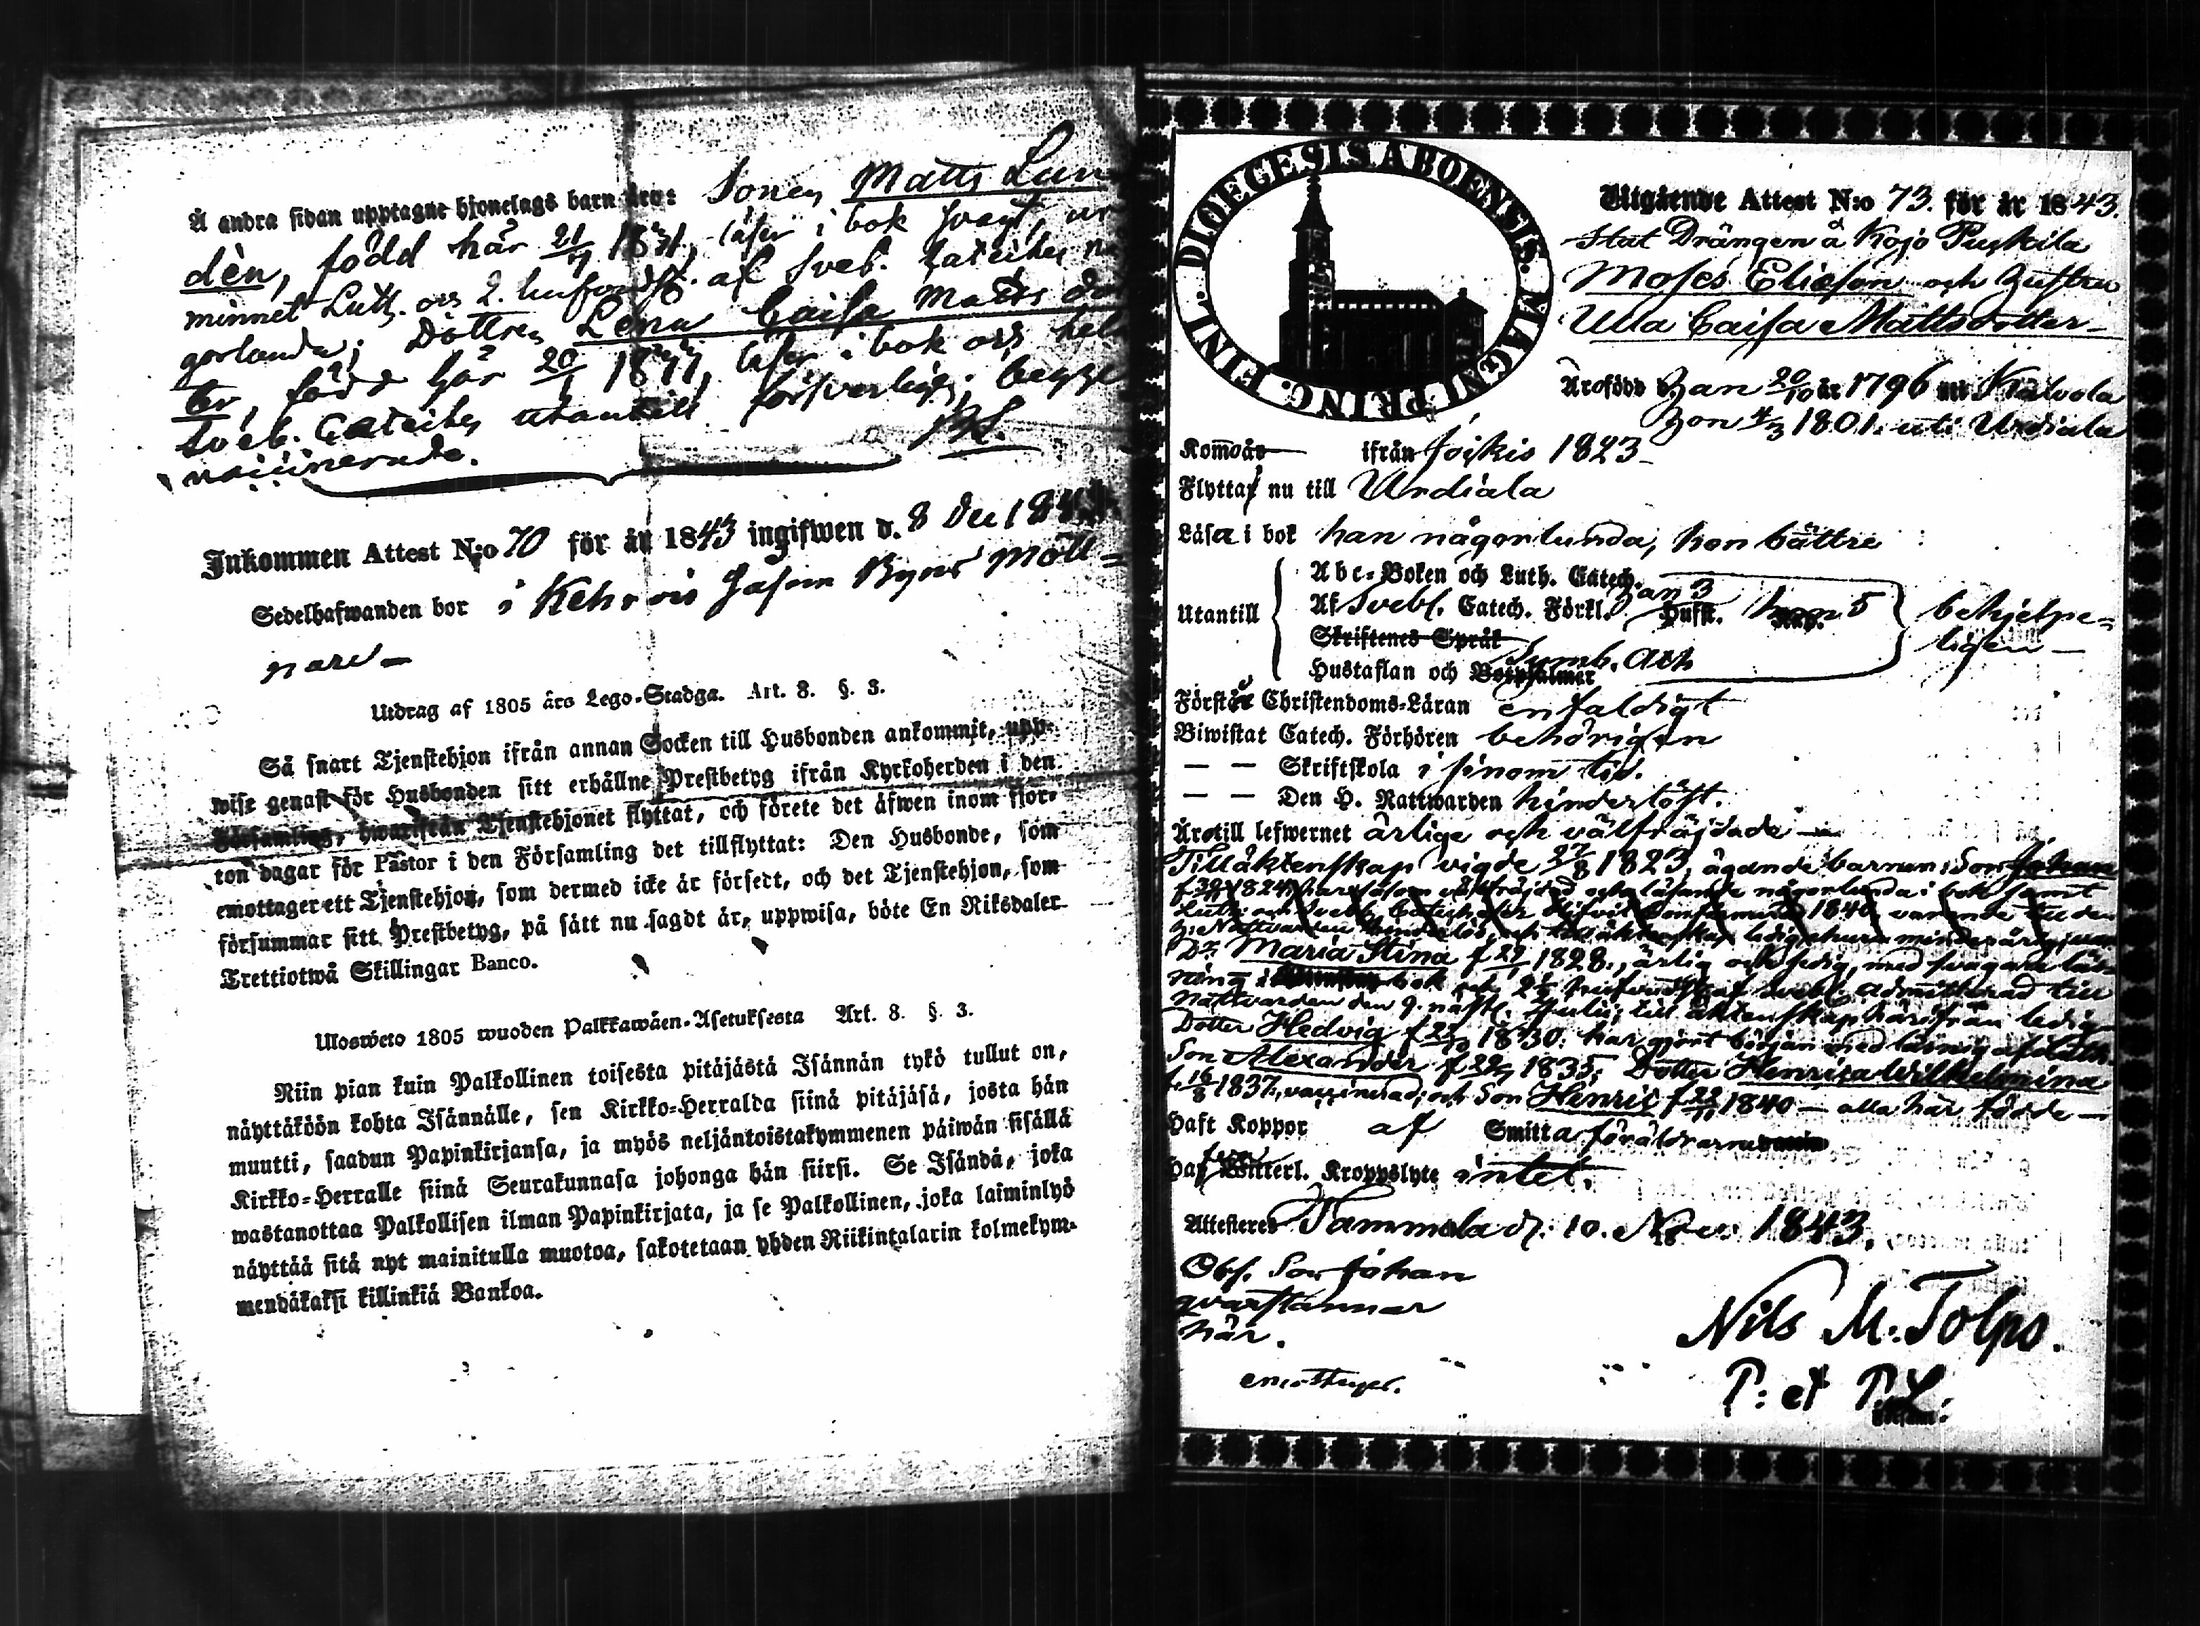 Å andra sidan upptagne hjonelags barn äro: Sonen Matts Lun
dén, född här 21/9 1831, läser i bok svagt, ur
minnet Luth. och 2. hufvudst. af Sveb. Cateches nå
gorlunda; Dottren Lena Caisa Matts do
ter, född här 20/1 läser i bok och
Sveb. Cateches utantill försvarligt; begge
vaccinerade.
Inkommen Attest N:o 70 för år 1843 ingifwen d. 8 Dec 184
Sedelhafwanden bor i Byns Möll-
nare
Utdrag af 1805 års Lego-Stadga. Art. 8. §. 3.
Så snart Tjenstehjon ifrån annan Socken till Husbonden ankommit, upp-
wise genast för Husbonden sitt erhållne Prestbetyg ifrån Kyrkoherden i den
Församling, hwarifrån Tjenstehjonet flyttat, och förete det äfwen inom fjor-
ton dagar för Pastor i den Församling det tillflyttat: Den Husbonde, som
emottager ett Tjenstehjon, som dermed icke är försedt, och det Tjenstehjon, som
försummar sitt Prestbetyg, på sätt nu sagdt är, uppwisa, böte En Riksdaler
Trettiotwå Skillingar Banco.
Ulosweto 1805 wuoden Palkkawäen-Asetuksesta Art. 8. §. 3.
Niin pian kuin Palkollinen toisesta pitäjästä Isännän tykö tullut on,
näyttäköön kohta Isännälle, sen Kirkko-Herralda siinä pitäjäsä, josta hän
muutti, saadun Papinkirjansa, ja myös neljäntoistakymmenen päiwän sisällä
Kirkko-Herralle siinä Seurakunnasa johonga hän siirsi. Se Isändä, joka
wastanottaa Palkollisen ilman Papinkirjata, ja se Palkollinen, joka laiminlyö
näyttää sitä nyt mainitulla muotoa, sakotetaan yhden Riikintalarin kolmekym-
mendäkaksi killinkiä Bankoa.
DIOECESIS ABOENSIS. MAGNI PRINC. FINL.
Utgående Attest N:o 73. för år 1843.
Stat Drängen å Kojo Puskila
Moses Elieson och hustru
Ulla Caisa Mattsdotter
Äro födde Han 20/10 år 1796 uti Kalvola
Hon 4/3 1801. uti Urdiala
Komo år ifrån Jockis 1823
Flytta nu till Urdiala
Läsa i bok han någorlunda, hon bättre
Utantill
Abc-Boken och Luth. Catech.
Af Svebl. Catech. Förkl. han 3 Hufst. hon 5
behjelpe=
ligen
Skriftenes Språk
Hustaflan och Botpsalmer Symb. Ath
Förstå Christendoms-Läran enfaldigt
Biwistat Catech. Förhören behörigen
— — Skriftskola i sinom tid.
— — Den H. Nattwarden hinderlöst.
Äro till lefwernet ärlige och välfräjdade
Till äktenskap vigde 27/8 1823, ägande barnen: Son Johan
f 29/8 1824 välfräjdad och läsande någorlunda i bok samt
Dr Maria Stina f 29/1 1828., ärlig och ledig, med svagare läs-
ning i bok och 2½ hufvudst. af Svebl. admitterad till
Nattvarden den 9. näst. Julii; till äktenskap härifrån ledig
Dotter Hedvig f 23/10 1830: har gjort början med läsning af Luth.
Son Alexander f 22/9 1835; Dotter Henrica Wilhelmina
f. 16/8 1837, vaccinerad; och Son Henric f 22/11 1840 — alla här födde —
Haft Koppor af Smitta föräldrarne
Witterl. Kroppslyte intet.
Attesteres Tammela d: 10. Nov. 1843.
Obs. Son Johan
qvarstannar
här.
emottages.
Nils M. Tolpo.
P: et P.L: